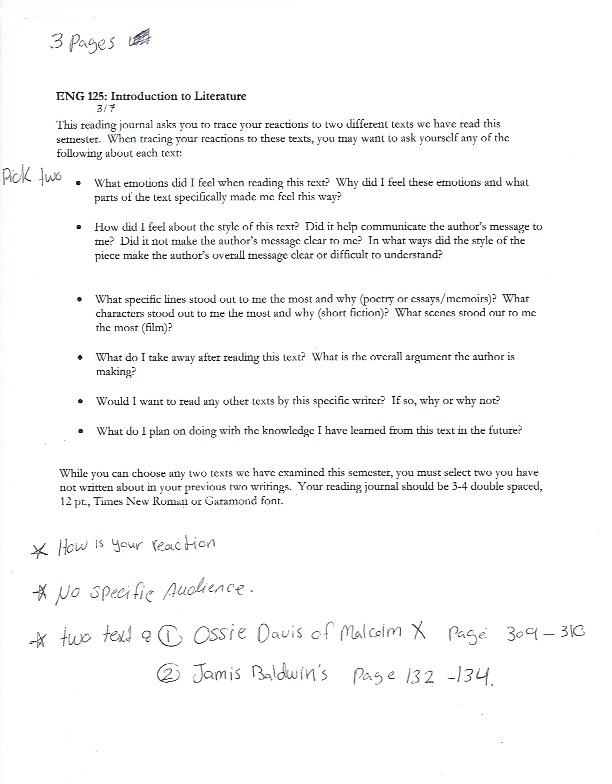 3 Pages
ENG 125: Introduction to Literature
3/7
This reading journal asks you to trace your reactions to two different texts we have read this
semester. When tracing your reactions to these texts, you may want to ask yourself any of the
following about each text:
Pick two
• What emotions did I feel when reading this text? Why did I feel these emotions and what
parts of the text specifically made me feel this way?
• How did I feel about the style of this text? Did it help communicate the author's message to
me? Did it not make the author's message clear to me? In what ways did the style of the
piece make the author's overall message clear or difficult to understand?
• What specific lines stood out to me the most and why (poetry or essays/memoirs)? What
characters stood out to me the most and why (short fiction)? What scenes stood out to me
the most (film)?
• What do I take away after reading this text? What is the overall argument the author is
making?
• Would I want to read any other texts by this specific writer? If so, why or why not?
• What do I plan on doing with the knowledge I have learned from this text in the future?
While you can choose any two texts we have examined this semester, you must select two you have
not written about in your previous two writings. Your reading journal should be 3-4 double spaced,
12 pt., Times New Roman or Garamond font.
* How is your reaction
* No specific Audience.
* two text ① Ossie Davis of Malcolm X Page 309-310
② Jamis Baldwin's Page 132-134.